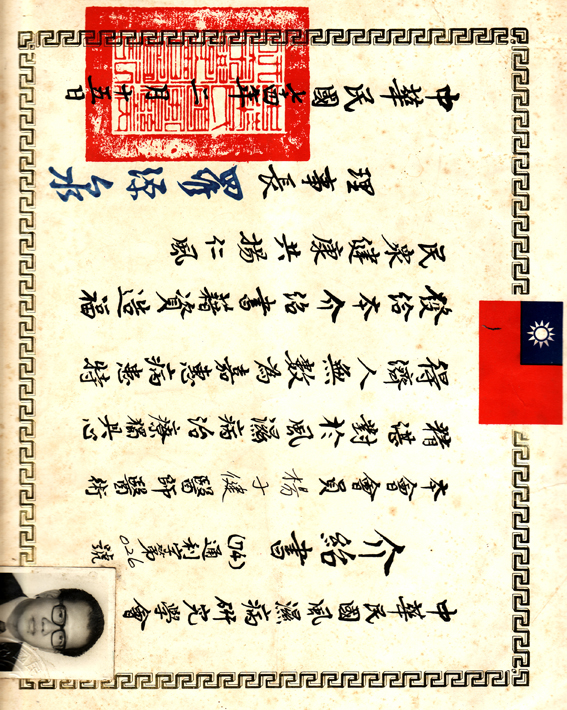 中華民國風濕病研究學會
介紹書
(74)通利字第026號
本會會員楊 健醫師醫術
精湛對於風濕病治療獨具心
得濟人無數為嘉惠病患特
發給本介紹書藉資造福
民衆健康共揚仁風
理事長
中華民國七四年二月十五日